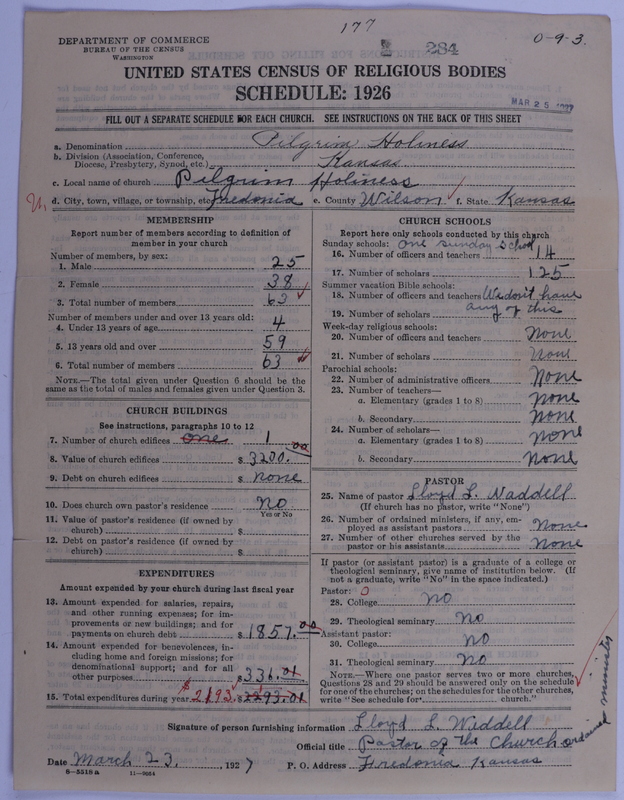 177
284
0-9-3.
DEPARTMENT OF COMMERCE
BUREAU OF THE CENSUS
WASHINGTON
UNITED STATES CENSUS OF RELIGIOUS BODIES
SCHEDULE: 1926
MAR 25 1927
FILL OUT A SEPARATE SCHEDULE FOR EACH CHURCH. SEE INSTRUCTIONS ON THE BACK OF THIS SHEET
a. Denomination Pilgrim Holiness
b. Division (Association, Conference, Diocese, Presbytery, Synod, etc.) Kansas
c. Local name of church Pilgrim Holiness
d. City, town, village, or township, etc. Fredonia e. County Wilson f. State Kansas
MEMBERSHIP
Report number of members according to definition of
member in your church
Number of members, by sex:
1. Male 25
2. Female 38
3. Total number of members 63
Number of members under and over 13 years old:
4. Under 13 years of age 4
5. 13 years old and over 59
6. Total number of members 63
NOTE.—The total given under Question 6 should be the
same as the total of males and females given under Question 3.
CHURCH BUILDINGS
See instructions, paragraphs 10 to 12
7. Number of church edifices one 1
8. Value of church edifices $ 3200.00
9. Debt on church edifices $ none
10. Does church own pastor's residence no
Yes or No
11. Value of pastor's residence (if owned by
church) $
12. Debt on pastor's residence (if owned by
church) $
EXPENDITURES
Amount expended by your church during last fiscal year
13. Amount expended for salaries, repairs,
and other running expenses; for im-
provements or new buildings; and for
payments on church debt $ 1857.00
14. Amount expended for benevolences, in-
cluding home and foreign missions; for
denominational support; and for all
other purposes $ 336.01
15. Total expenditures during year $ 2193. $ 2293.01
CHURCH SCHOOLS
Report here only schools conducted by this church
Sunday schools: one sunday school
16. Number of officers and teachers 14
17. Number of scholars 125
Summer vacation Bible schools:
18. Number of officers and teachers We don't have
19. Number of scholars any of this
Week-day religious schools:
20. Number of officers and teachers None
21. Number of scholars None
Parochial schools:
22. Number of administrative officers None
23. Number of teachers—
a. Elementary (grades 1 to 8) None
b. Secondary None
24. Number of scholars—
a. Elementary (grades 1 to 8) None
b. Secondary None
PASTOR
25. Name of pastor Lloyd L. Waddell
(If church has no pastor, write "None")
26. Number of ordained ministers, if any, em-
ployed as assistant pastors None
27. Number of other churches served by the
pastor or his assistants None
If pastor (or assistant pastor) is a graduate of a college or
theological seminary, give name of institution below. (If
not a graduate, write "No" in the space indicated.)
Pastor: 0
28. College no
29. Theological seminary No
Assistant pastor:
30. College No
31. Theological seminary No
NOTE.—Where one pastor serves two or more churches,
Questions 28 and 29 should be answered only on the schedule
for one of the churches; on the schedules for the other churches,
write "See schedule for church."
Signature of person furnishing information Lloyd L. Waddell
Official title Pastor of the Church ordained minister
Date March 23, 1927 P. O. Address Fredonia Kansas
8—5518 a 11—9664